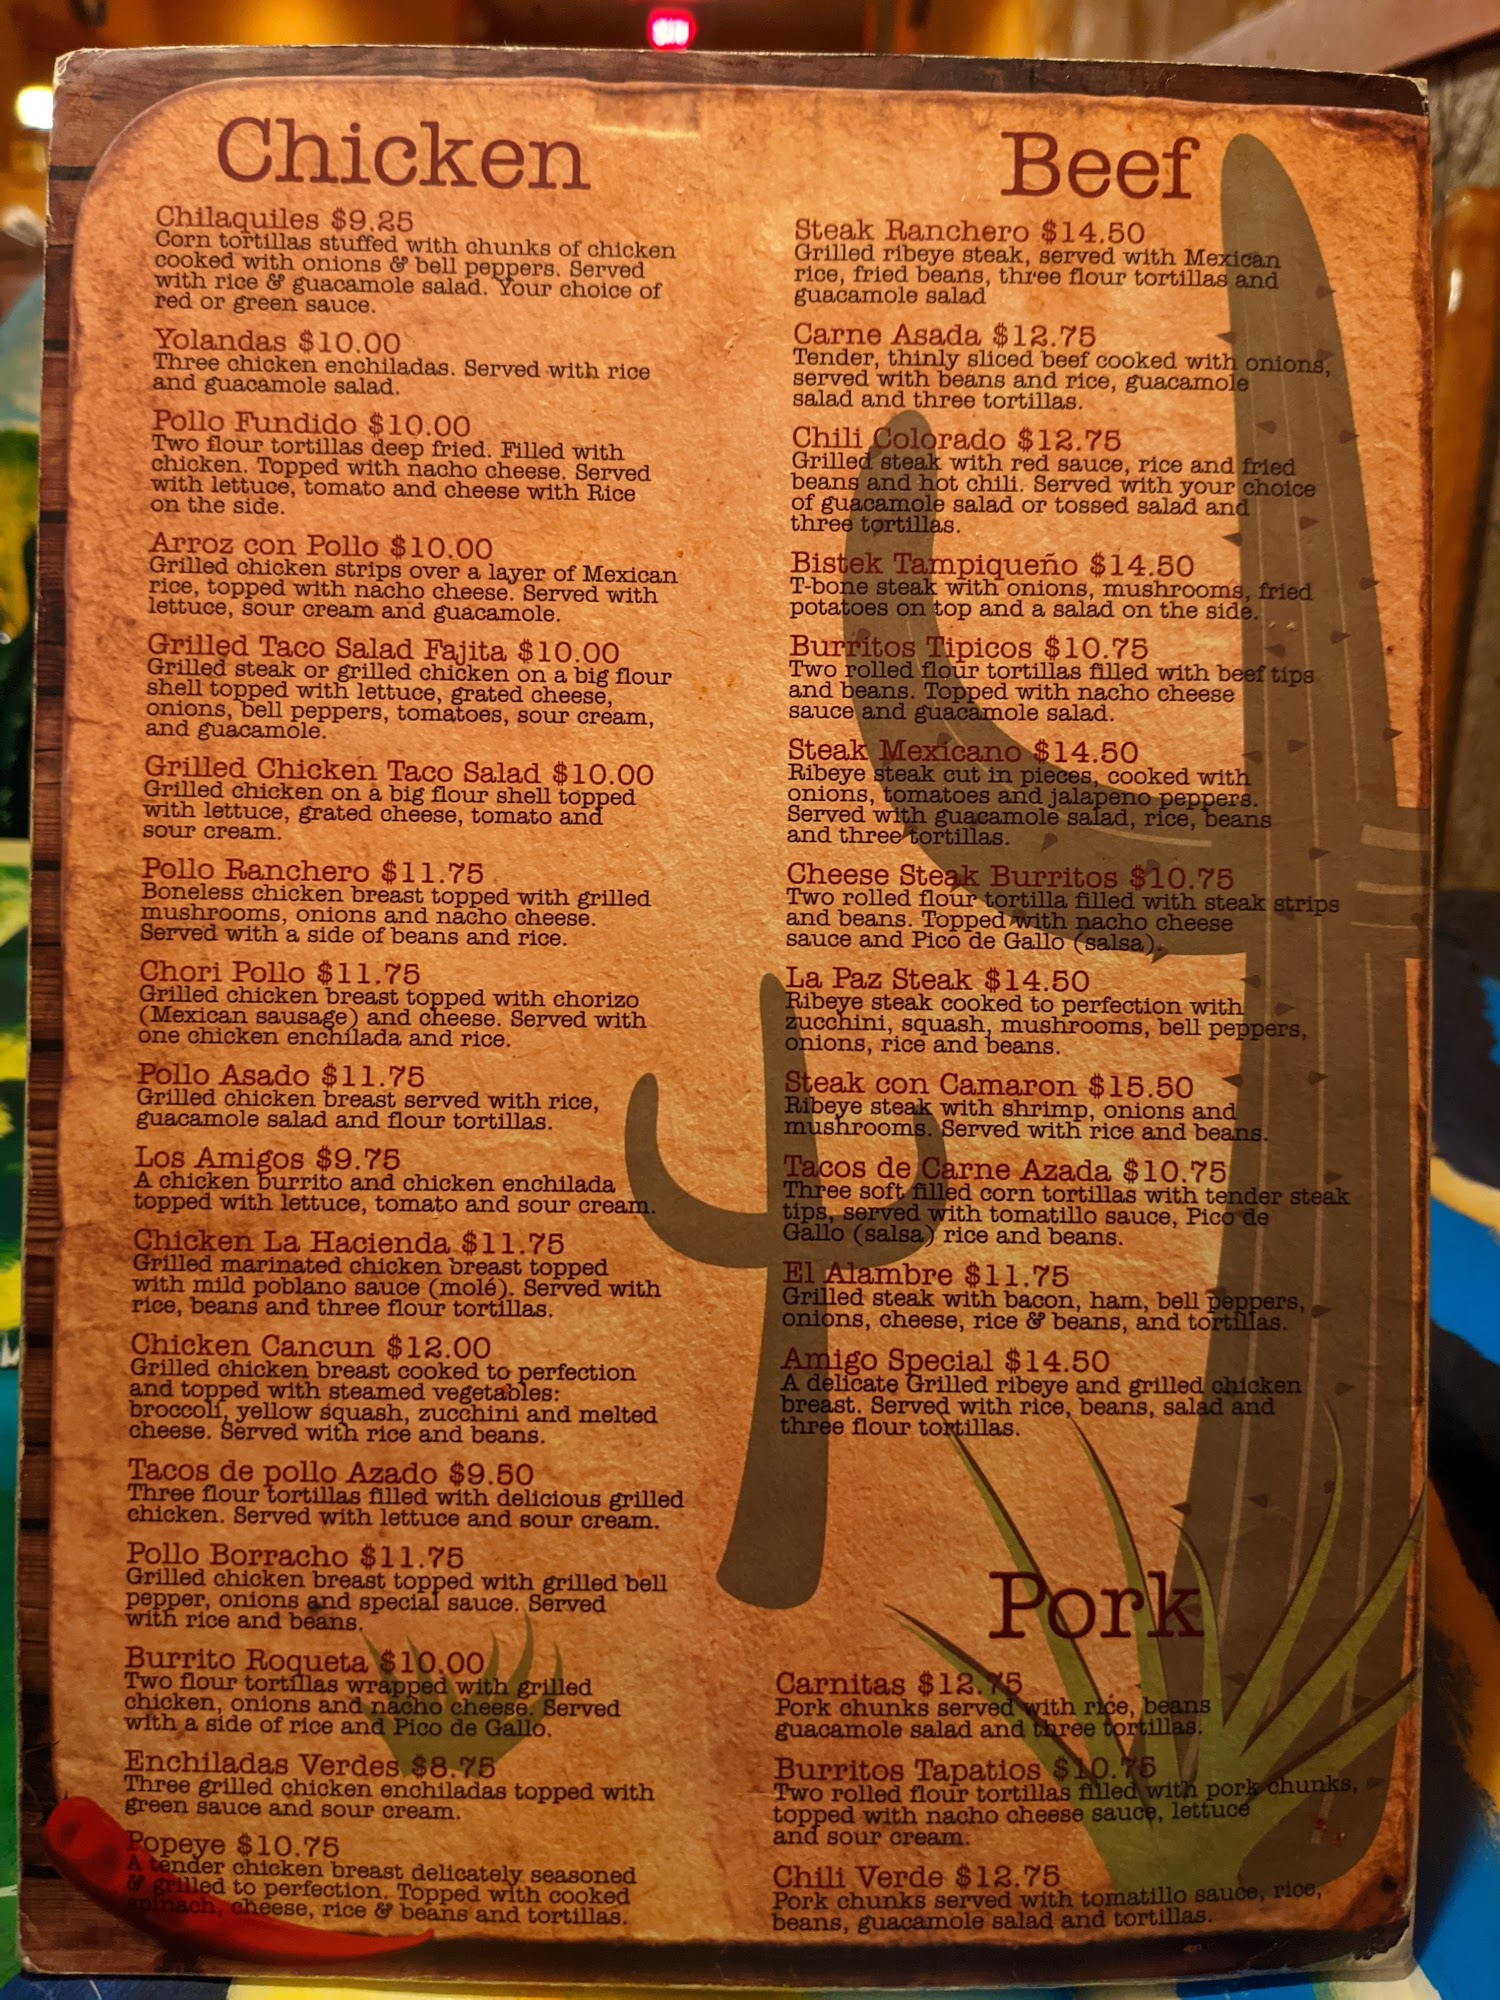 Chicken
Chilaquiles $9.25
Corn tortillas stuffed with chunks of chicken
cooked with onions & bell peppers. Served
with rice & guacamole salad. Your choice of
red or green sauce.
Yolandas $10.00
Three chicken enchiladas. Served with rice
and guacamole salad.
Pollo Fundido $10.00
Two flour tortillas deep fried. Filled with
chicken. Topped with nacho cheese. Served
with lettuce, tomato and cheese with Rice
on the side.
Arroz con Pollo $10.00
Grilled chicken strips over a layer of Mexican
rice, topped with nacho cheese. Served with
lettuce, sour cream and guacamole.
Grilled Taco Salad Fajita $10.00
Grilled steak or grilled chicken on a big flour
shell topped with lettuce, grated cheese,
onions, bell peppers, tomatoes, sour cream,
and guacamole.
Grilled Chicken Taco Salad $10.00
Grilled chicken on a big flour shell topped
with lettuce, grated cheese, tomato and
sour cream.
Pollo Ranchero $11.75
Boneless chicken breast topped with grilled
mushrooms, onions and nacho cheese.
Served with a side of beans and rice.
Chori Pollo $11.75
Grilled chicken breast topped with chorizo
(Mexican sausage) and cheese. Served with
one chicken enchilada and rice.
Pollo Asado $11.75
Grilled chicken breast served with rice,
guacamole salad and flour tortillas.
Los Amigos $9.75
A chicken burrito and chicken enchilada
topped with lettuce, tomato and sour cream.
Chicken La Hacienda $11.75
Grilled marinated chicken breast topped
with mild poblano sauce (molé). Served with
rice, beans and three flour tortillas.
Chicken Cancun $12.00
Grilled chicken breast cooked to perfection
and topped with steamed vegetables:
broccoli, yellow squash, zucchini and melted
cheese. Served with rice and beans.
Tacos de pollo Azado $9.50
Three flour tortillas filled with delicious grilled
chicken. Served with lettuce and sour cream.
Pollo Borracho $11.75
Grilled chicken breast topped with grilled bell
pepper, onions and special sauce. Served
with rice and beans.
Burrito Roqueta $10.00
Two flour tortillas wrapped with grilled
chicken, onions and nacho cheese. Served
with a side of rice and Pico de Gallo.
Enchiladas Verdes $8.75
Three grilled chicken enchiladas topped with
green sauce and sour cream.
Popeye $10.75
A tender chicken breast delicately seasoned
& grilled to perfection. Topped with cooked
spinach, cheese, rice & beans and tortillas.
Beef
Steak Ranchero $14.50
Grilled ribeye steak, served with Mexican
rice, fried beans, three flour tortillas and
guacamole salad
Carne Asada $12.75
Tender, thinly sliced beef cooked with onions,
served with beans and rice, guacamole
salad and three tortillas.
Chili Colorado $12.75
Grilled steak with red sauce, rice and fried
beans and hot chili. Served with your choice
of guacamole salad or tossed salad and
three tortillas.
Bistek Tampiqueño $14.50
T-bone steak with onions, mushrooms, fried
potatoes on top and a salad on the side.
Burritos Tipicos $10.75
Two rolled flour tortillas filled with beef tips
and beans. Topped with nacho cheese
sauce and guacamole salad.
Steak Mexicano $14.50
Ribeye steak cut in pieces, cooked with
onions, tomatoes and jalapeno peppers.
Served with guacamole salad, rice, beans
and three tortillas.
Cheese Steak Burritos $10.75
Two rolled flour tortilla filled with steak strips
and beans. Topped with nacho cheese
sauce and Pico de Gallo (salsa).
La Paz Steak $14.50
Ribeye steak cooked to perfection with
zucchini, squash, mushrooms, bell peppers,
onions, rice and beans.
Steak con Camaron $15.50
Ribeye steak with shrimp, onions and
mushrooms. Served with rice and beans.
Tacos de Carne Azada $10.75
Three soft filled corn tortillas with tender steak
tips, served with tomatillo sauce, Pico de
Gallo (salsa) rice and beans.
El Alambre $11.75
Grilled steak with bacon, ham, bell peppers,
onions, cheese, rice & beans, and tortillas.
Amigo Special $14.50
A delicate Grilled ribeye and grilled chicken
breast. Served with rice, beans, salad and
three flour tortillas.
Pork
Carnitas $12.75
Pork chunks served with rice, beans
guacamole salad and three tortillas.
Burritos Tapatios $10.75
Two rolled flour tortillas filled with pork chunks,
topped with nacho cheese sauce, lettuce
and sour cream.
Chili Verde $12.75
Pork chunks served with tomatillo sauce, rice,
beans, guacamole salad and tortillas.